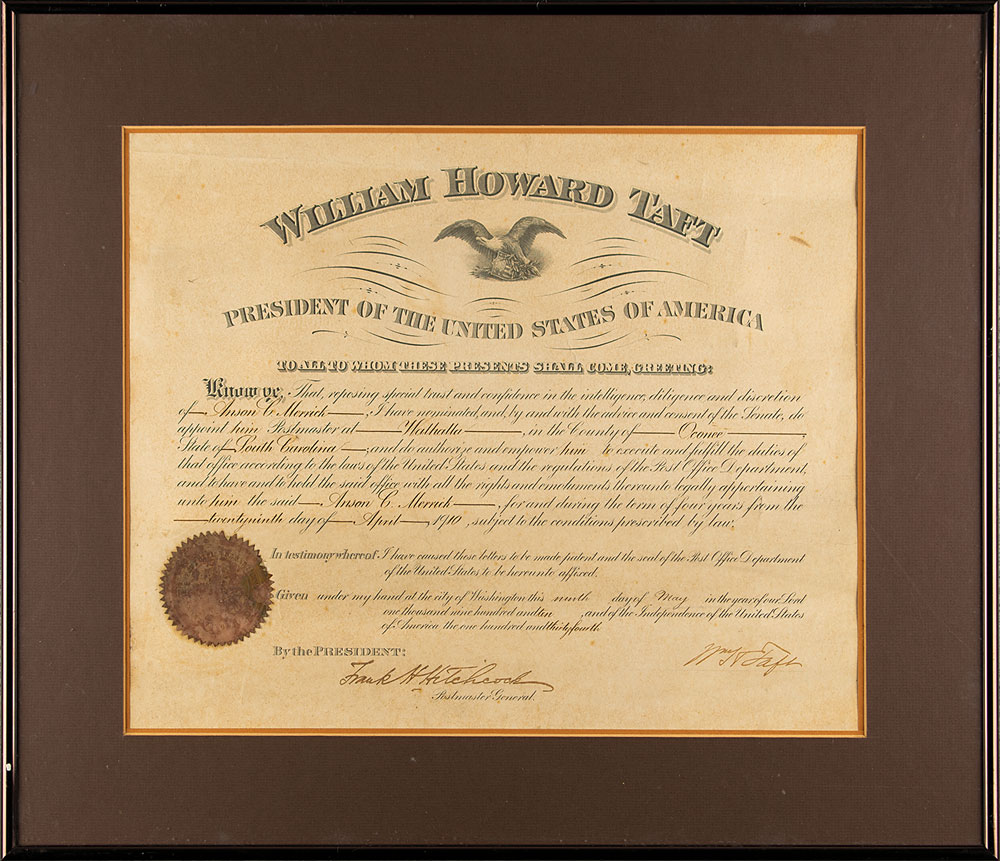 WILLIAM HOWARD TAFT
PRESIDENT OF THE UNITED STATES OF AMERICA
TO ALL TO WHOM THESE PRESENTS SHALL COME, GREETING:
Know ye, That, reposing special trust and confidence in the intelligence, diligence and discretion
of Anson C. Merrick, I have nominated, and, by and with the advice and consent of the Senate, do
appoint him Postmaster at Walhalla, in the County of Oconee,
State of South Carolina, and do authorize and empower him to execute and fulfill the duties of
that office according to the laws of the United States and the regulations of the Post Office Department,
and to have and to hold the said office with all the rights and emoluments thereunto legally appertaining
unto him the said Anson C. Merrick, for and during the term of four years from the
twentyninth day of April, 1910, subject to the conditions prescribed by law.
In testimony whereof I have caused these letters to be made patent and the seal of the Post Office Department
of the United States to be hereunto affixed.
Given under my hand at the city of Washington this ninth day of May in the year of our Lord
one thousand nine hundred and ten, and of the Independence of the United States
of America the one hundred and thirty fourth.
By the PRESIDENT:
Wm H Taft
Frank H Hitchcock
Postmaster General.